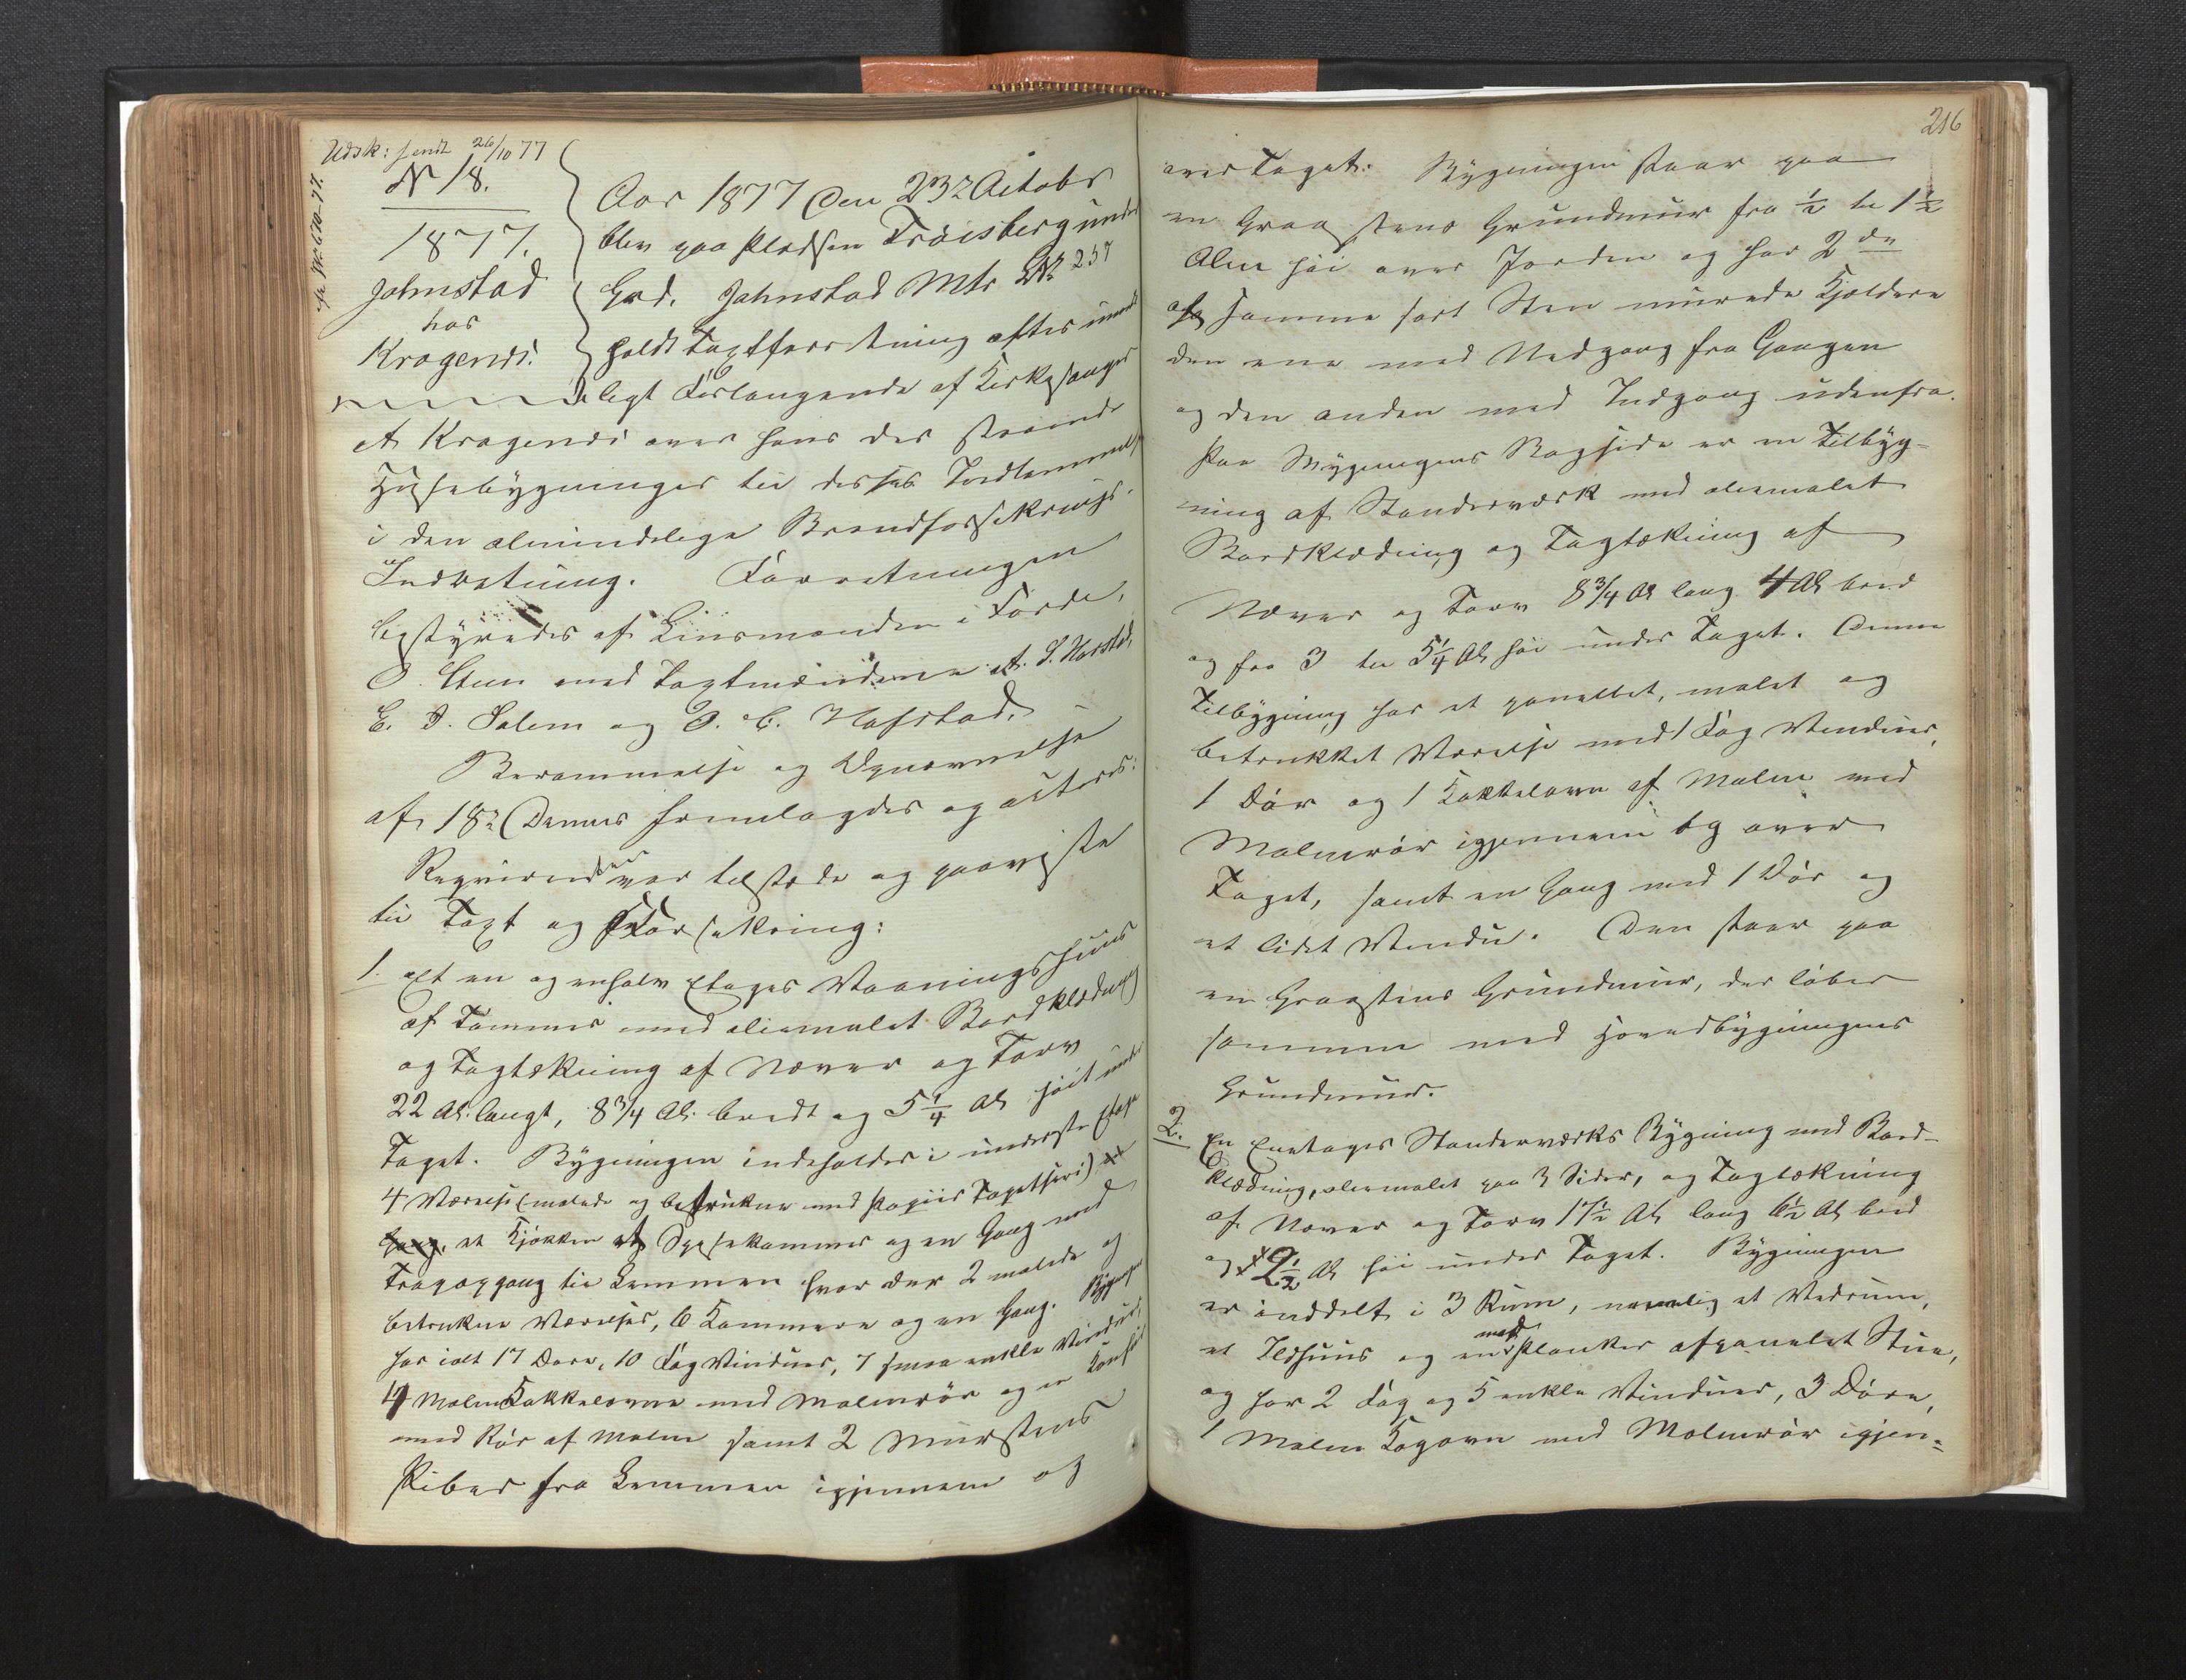 Udsk: sendt 26/10 77
N 18.
1877.
Jahnstad
hos
Kragenes.
Aar 1877 den 23e Actobr
blev paa Pladsen Fröisberg under
Grd. Jahnstad Mtr LNr 257
holdt Taxtforretning efter mund
deligt Forlangende af Kirkesanger
A Kragenes over hans der staaende
Huusebygninger til disses Indlemmelse
i den almindelige Brandforsikrings-
Indretning. Forretningen
bestyredes af Linsmanden i Förde,
O. Steen med Taxtmændene A. S. Harstad,
E. I. Solem og O. C. Hafstad.
Berammelse og Opnævnelse
af 18e Dennes fremlagdes og acteres:
Requirenten var tilstæde og paaviste
til Taxt og Forsikring:
1. Et en og enhalv Etages Vaaningshuus
af Tömmer med oliemalet Bordklædning
og Tagtækning af Næver og Torv
22 Al. langt, 8 3/4 Al. bredt og 5 1/4 Al höit under
Taget. Bygningen indeholder i underste Etage
4 Værelser (malede og betrukne med Papiir Tapetseri)
Gang, et Kjökken et Spisekammer og en Gang med
Trapopgang til Lemmen hvor der 2 malede og
betrukne Værelser, 6 Kammere og en Gang. Bygningen
har ialt 17 Döre, 10 Fag Vinduer, 7 smaa enkle Vinduer,
4 Malm Kakkelovne med Malmrör og en Komfur
med Rör af Malm samt 2 Murstens
Piber fra Lemmen igjennem og
216
over Taget. Bygningen staar paa
en Graastens Grundmuur fra 1/2 til 1 1/2
Alen höi over Jorden og har 2de
af samme sort Sten murede Kjeldere
den ene med Nedgang fra Gangen
og den anden med Indgang udenfra.
Paa Bygningens Bagside er en Tilbyg-
ning af Standerværk med oliemalet
Bordklædning og Tagtækning af
Næver og Torv 8 3/4 Al lang 4 Al bred
og fra 3 til 5 1/4 Al höi under Taget. Denne
Tilbygning har et panellet, malet og
betrukket Værelse med 1 Fag Vinduer,
1 Dör og 1 Kakkelovn af Malm med
Malmrör igjennem og over
Taget, samt en Gang med 1 Dör og
et lidet Vindu. Den staar paa
en Graastens Grundmuur, der löber
sammen med Hovedbygningens
Grundmuur.
2. En Enetages Standerværks Bygning med Bord-
klædning, oliemalet paa 3 Sider, og Tagtækning
af Næver og Torv 17 1/2 Al lang 6 1/2 Al bred
og 2 1/2 Al höi under Taget. Bygningen
er inddelt i 3 Rum, nemlig et Vedrum,
et Ildhuus og en med Planker afpanelet Stue,
og har 2 Fag og 5 enkle Vinduer, 3 Döre,
1 Malm Kogovn med Malmrör igjen-